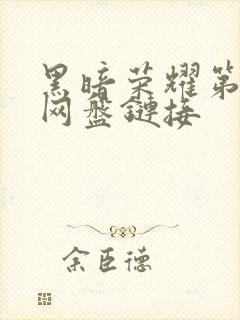 黑暗荣耀第
网盘链接
余臣德